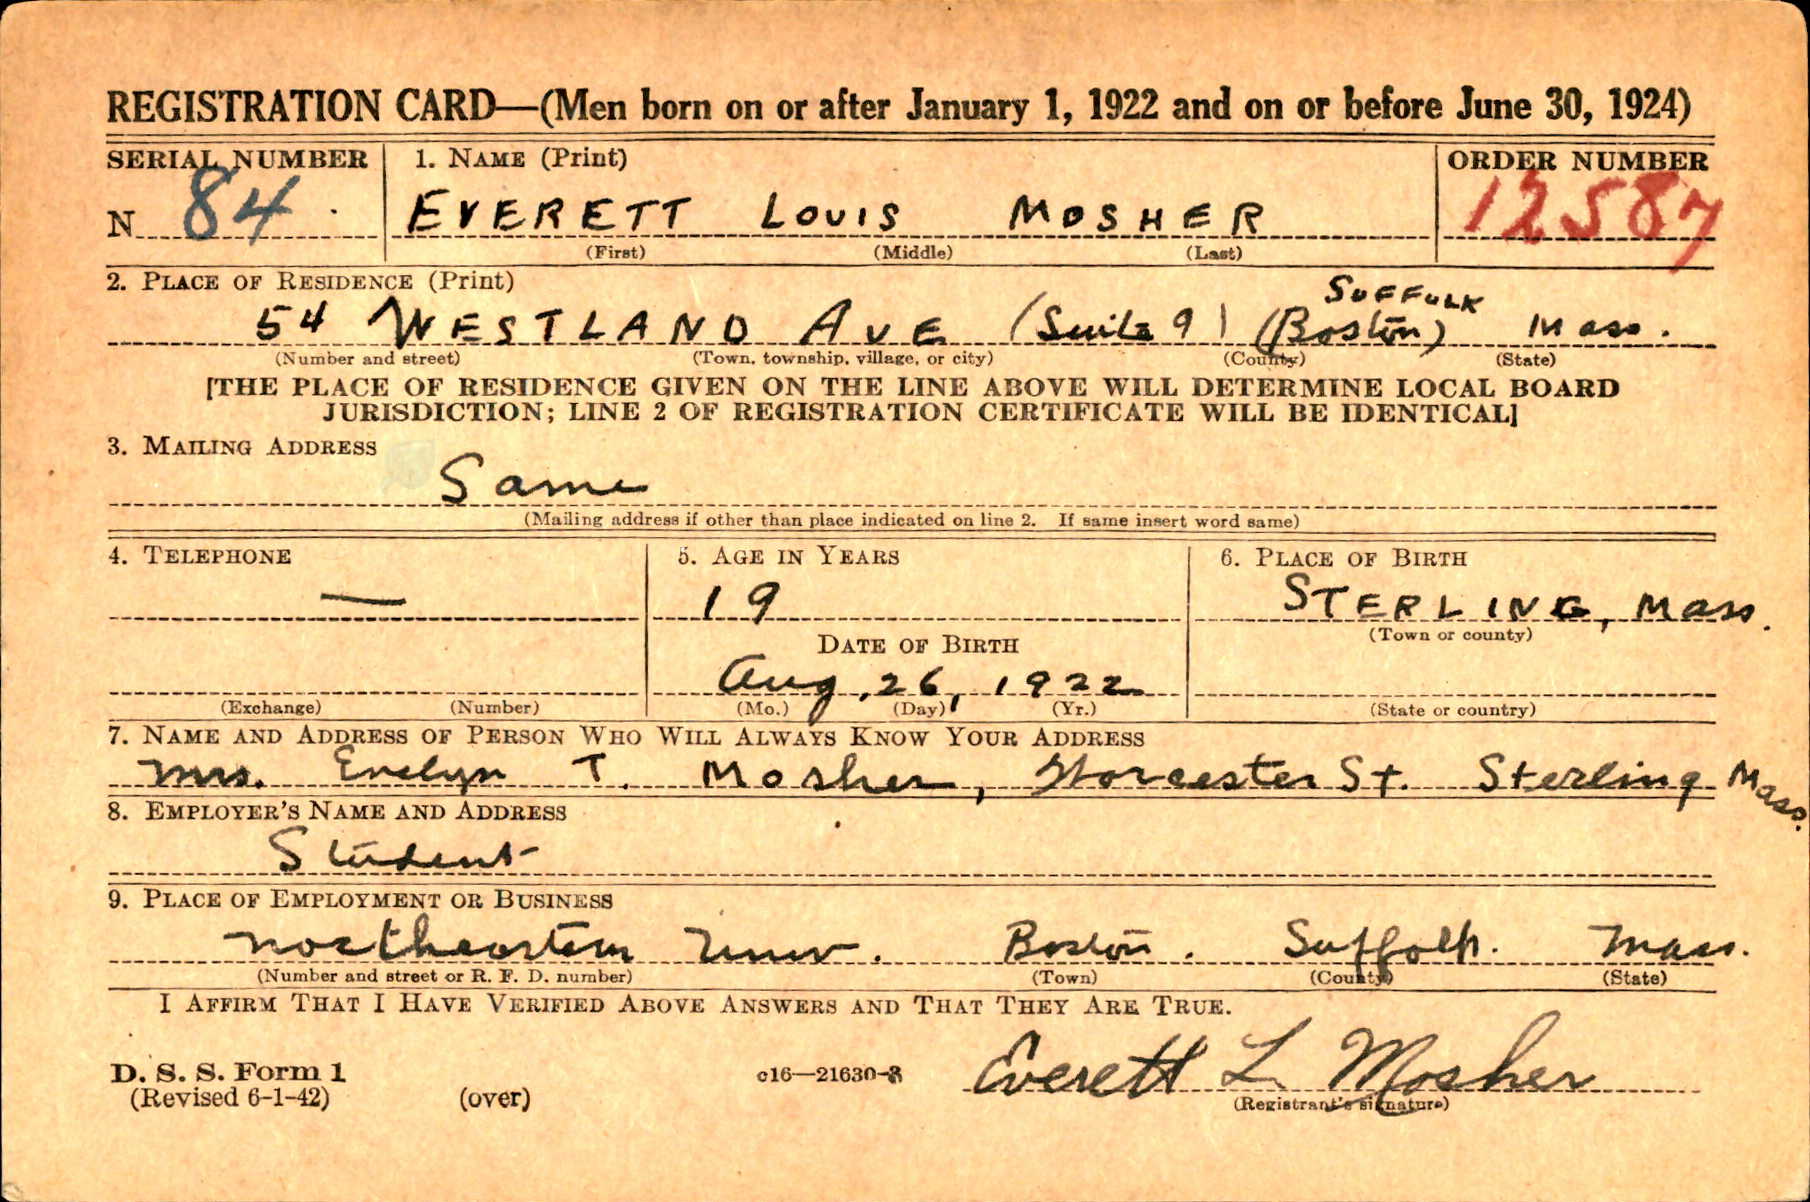 REGISTRATION CARD—(Men born on or after January 1, 1922 and on or before June 30, 1924)
SERIAL NUMBER 1. NAME (Print) ORDER NUMBER
N 84 EVERETT LOUIS MOSHER 12587
(First) (Middle) (Last)
2. PLACE OF RESIDENCE (Print)
SUFFOLK
54 WESTLAND AVE (Suite 9) (Boston) Mass.
(Number and street) (Town, township, village, or city) (County) (State)
[THE PLACE OF RESIDENCE GIVEN ON THE LINE ABOVE WILL DETERMINE LOCAL BOARD
JURISDICTION; LINE 2 OF REGISTRATION CERTIFICATE WILL BE IDENTICAL]
3. MAILING ADDRESS
Same
(Mailing address if other than place indicated on line 2. If same insert word same)
4. TELEPHONE 5. AGE IN YEARS 6. PLACE OF BIRTH
— 19 STERLING, Mass.
(Town or county)
DATE OF BIRTH
Aug. 26, 1922
(Exchange) (Number) (Mo.) (Day) (Yr.) (State or country)
7. NAME AND ADDRESS OF PERSON WHO WILL ALWAYS KNOW YOUR ADDRESS
Mrs. Evelyn T. Mosher, Worcester St. Sterling Mass.
8. EMPLOYER'S NAME AND ADDRESS
Student
9. PLACE OF EMPLOYMENT OR BUSINESS
Northeastern Univ. Boston. Suffolk. Mass.
(Number and street or R. F. D. number) (Town) (County) (State)
I AFFIRM THAT I HAVE VERIFIED ABOVE ANSWERS AND THAT THEY ARE TRUE.
D. S. S. Form 1 c16—21630-3 Everett L Mosher
(Revised 6-1-42) (over) (Registrant's signature)